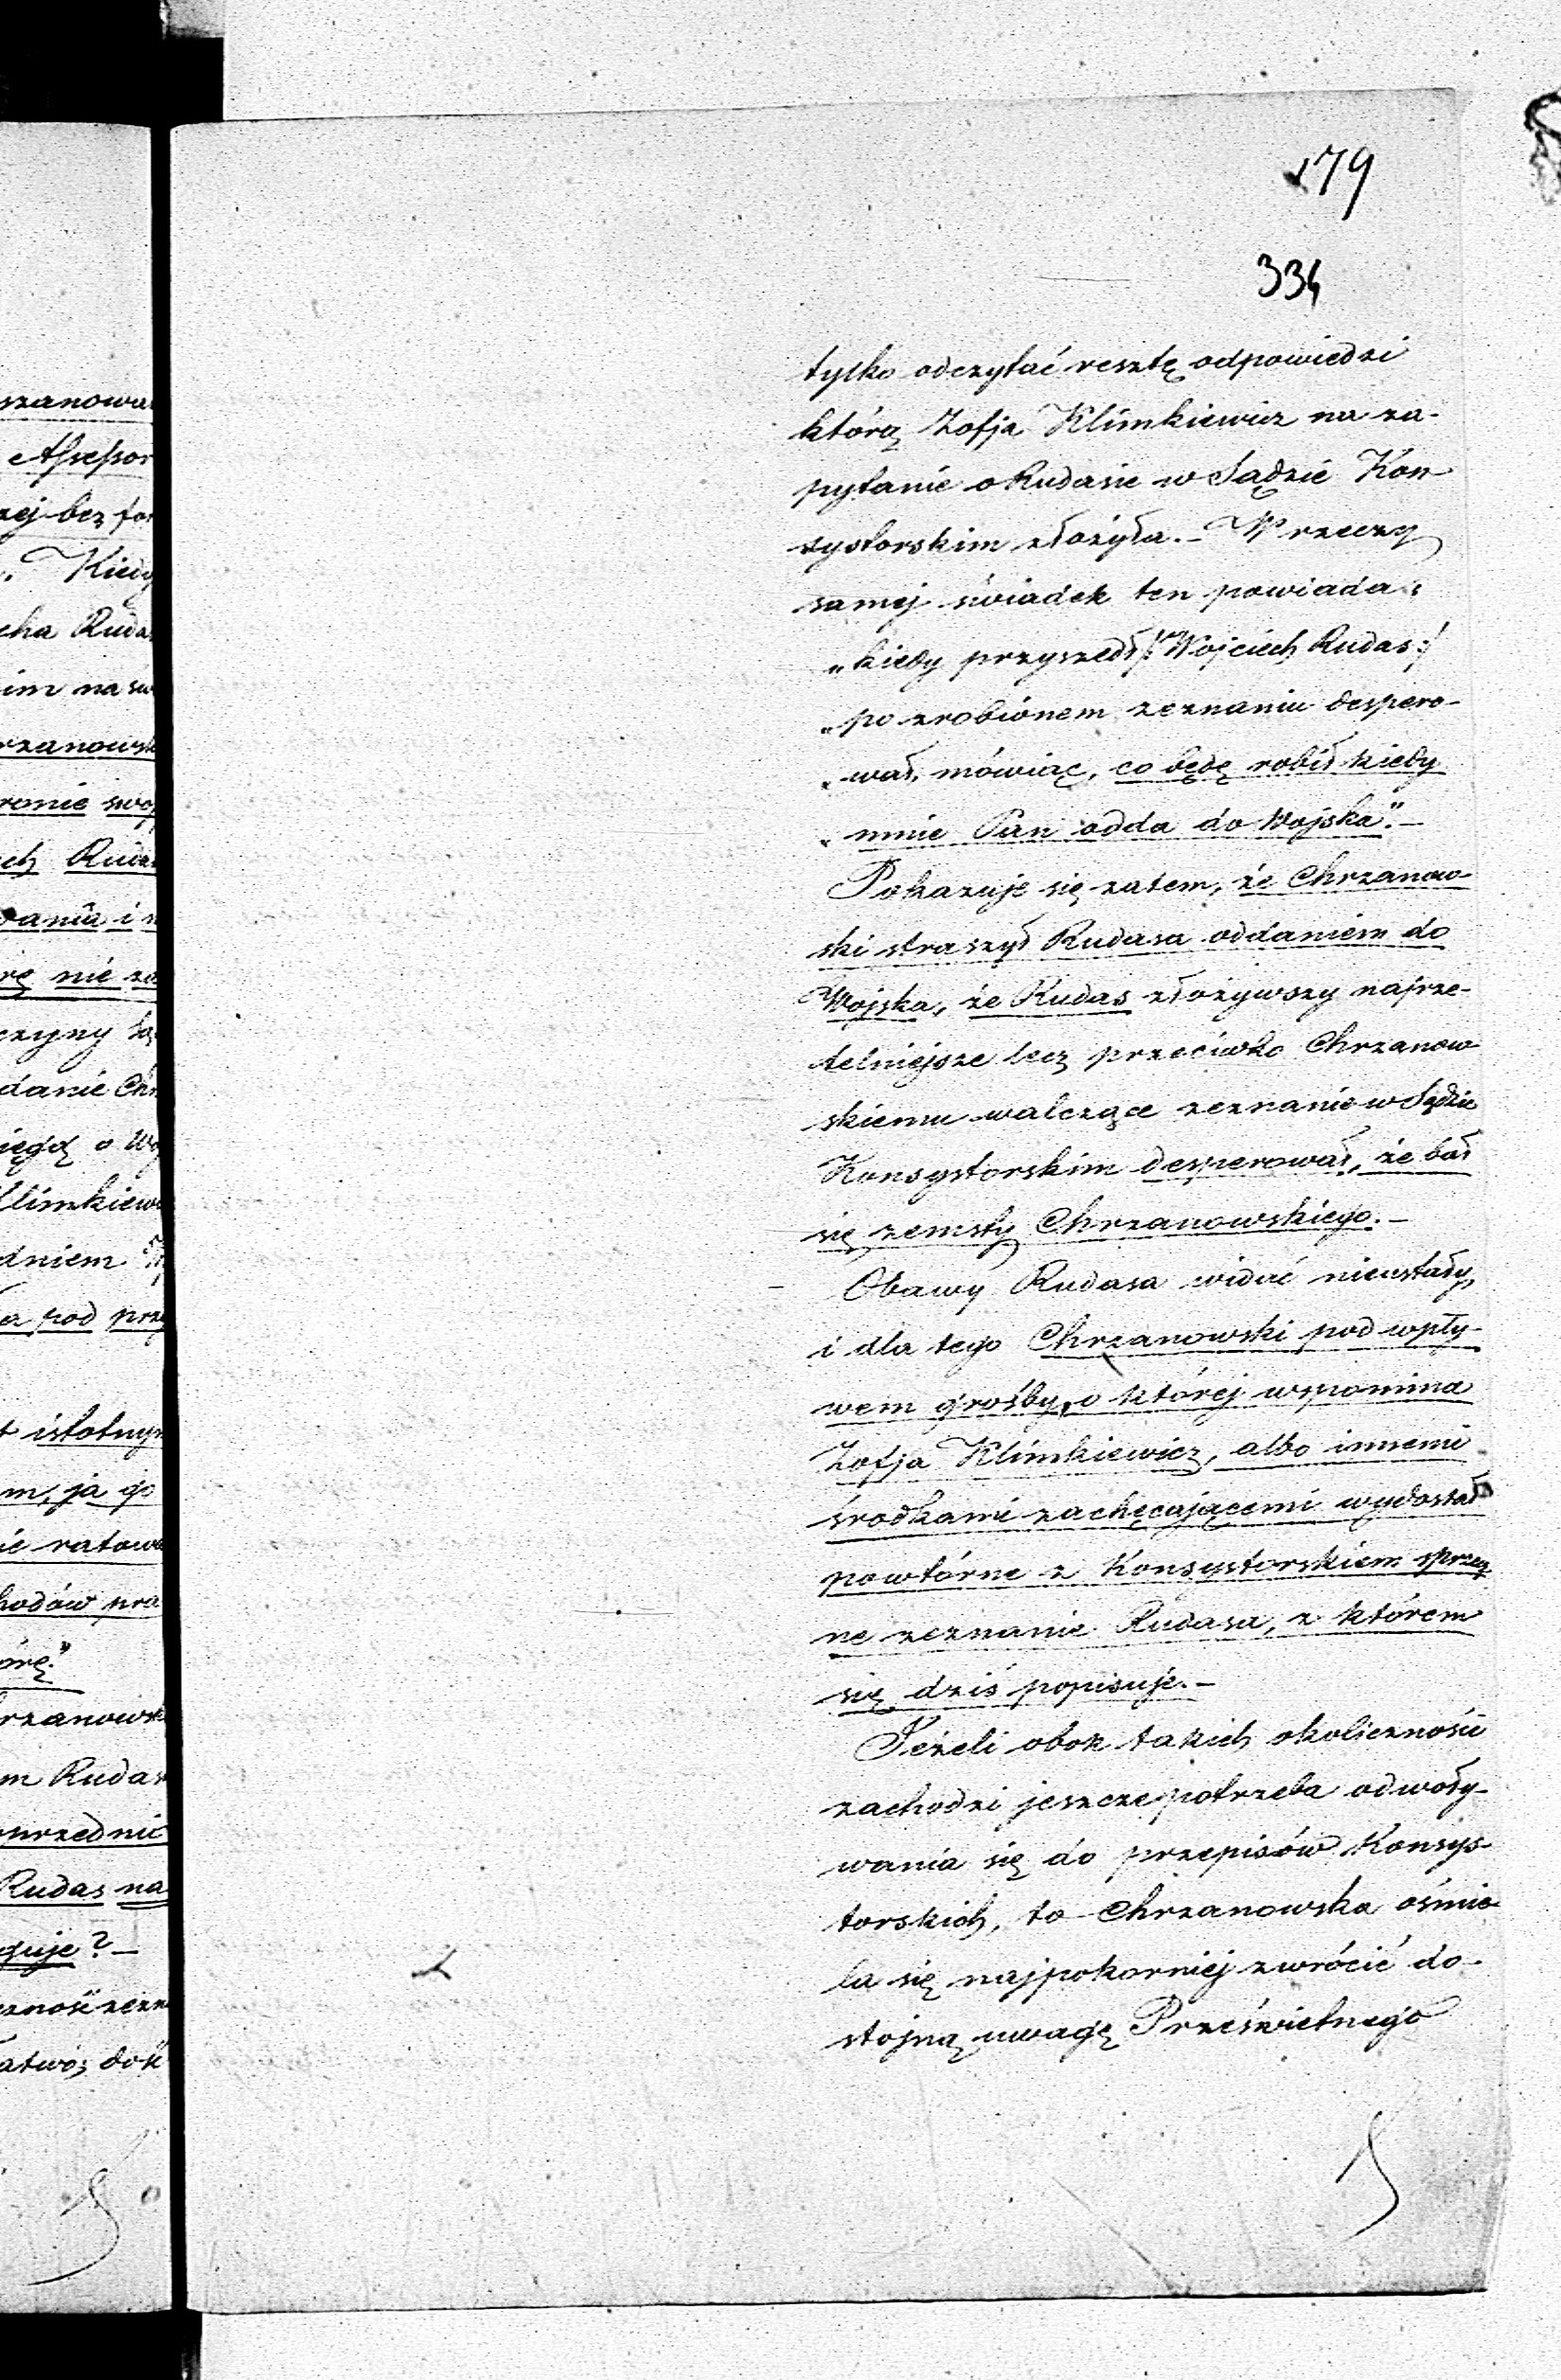 179
334
tylko odczytać resztę odpowiedzi
którą Zofja Klimkiewicz na za-
pytanie o Rudasie w Sądzie Kon-
systorskim złożyła. – W rzeczy
samej świadek ten powiada:
„kiedy przyszedł /: Wojciech Rudas :/
„po zrobionem zeznaniu despero-
„wał, mówiąc, co będę robił kiedy
„mnie Pan odda do Wojska". –
Pokazuje się zatem, że Chrzanow-
ski straszył Rudasa oddaniem do
Wojska, że Rudas złożywszy najrze-
telniejsze lecz przeciwko Chrzanow-
skiemu walczące zeznanie w Sądzie
Konsystorskim desperował, że bał
się zemsty Chrzanowskiego. –
Obawy Rudasa widać nieustały,
i dla tego Chrzanowski pod wpły-
wem groźby, o której wspomina
Zofja Klimkiewicz, albo innemi
środkami zachęcającemi wydostał
powtórne z Konsystorskiem sprzecz
ne zeznanie Rudasa, z którem
się dziś popisuje. –
Jeżeli obok takich okoliczności
zachodzi jeszcze potrzeba odwoły-
wania się do przepisów Konsys-
torskich, to Chrzanowska ośmie
la się najpokorniej zwrócić do-
stojną uwagę Prześwietnego
szanowa
Assessor
zej bez
Kiedy
cha Ruda
im na
rzanowsk
ronie swo
ch Ruda
wania i n
rę nie
czyny
danie Chr
ięgą o
Klimkiew
dniem
a pod prz
t istotnym
m, ja go
ie ratowa
hodów pra
órę."
hrzanowsk
m Rudas
oprzednie
Rudas na
guje? –
czność zezn
atwo, dość